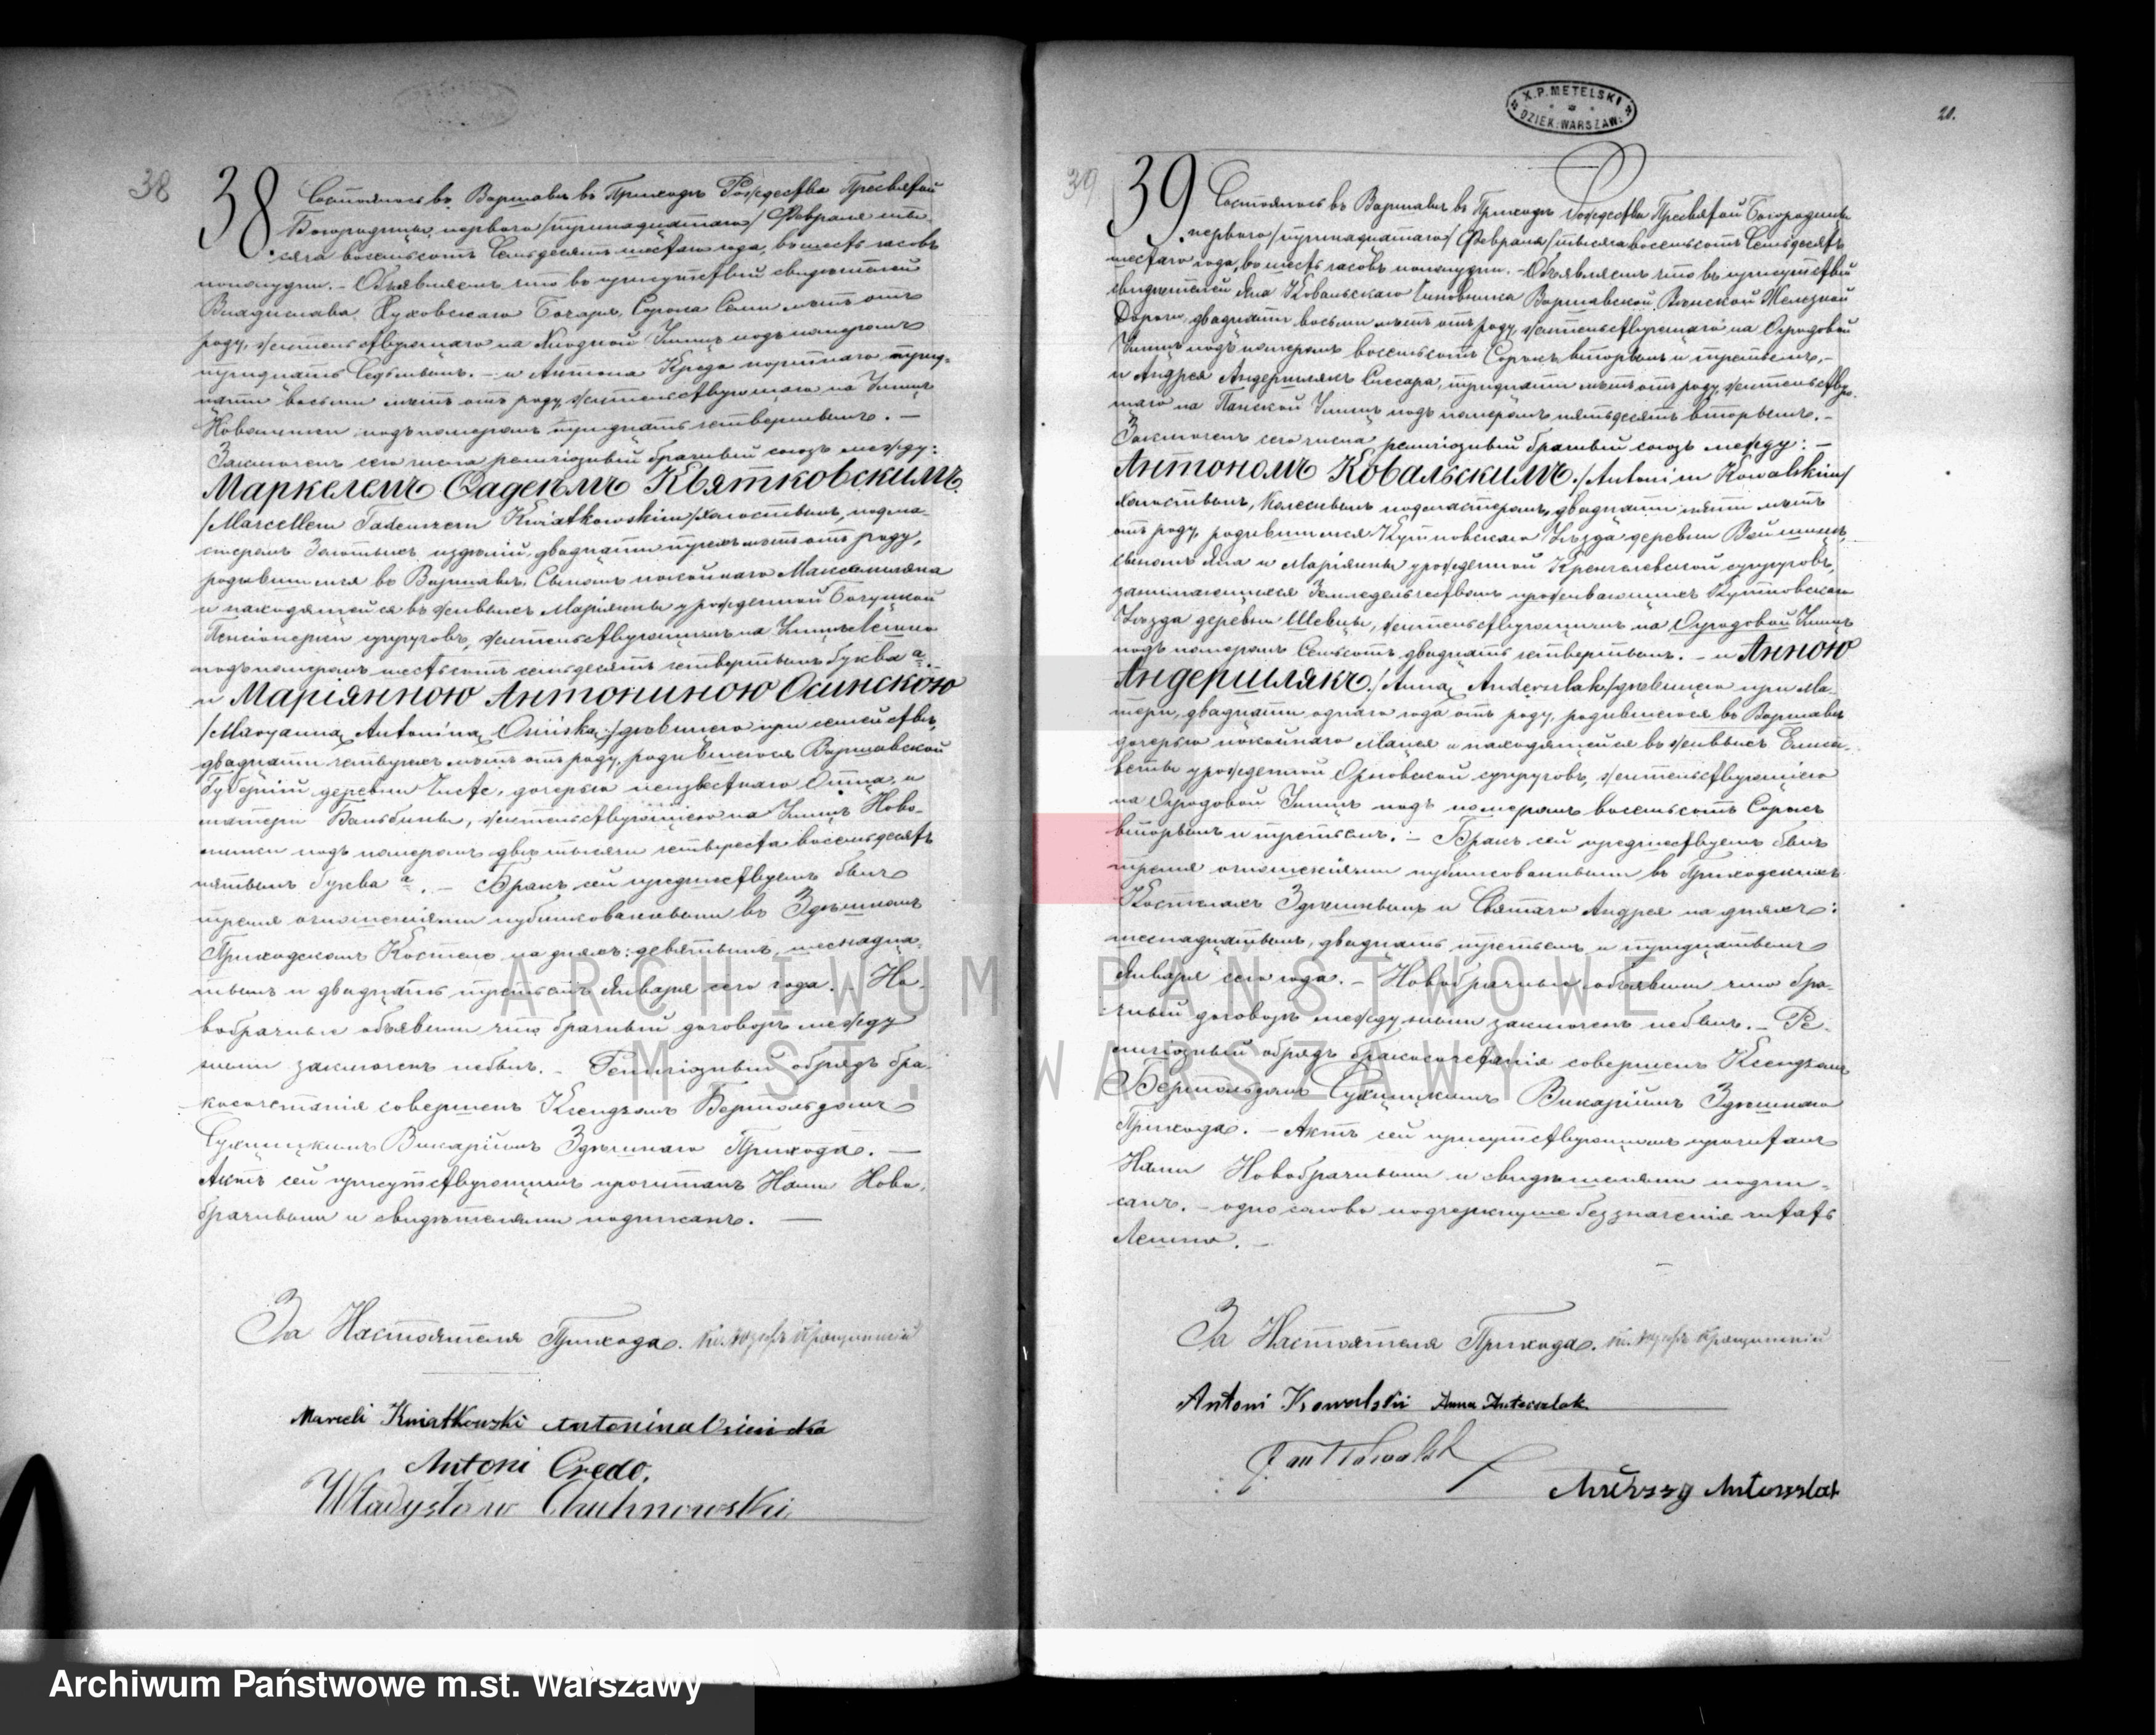 38
38 Состоялось въ Варшавѣ въ Приходѣ Рождества Пресвятой
Богородицы перваго /тринадцатаго/ Февраля тыс-
сяча восемьсотъ Семьдесятъ шестаго года, въ шесть часовъ
пополудни. – Объявляемъ что въ присутствіи свидѣтелей
Владислава Бочаря, Сорока Семи лѣтъ отъ
роду, жительствующаго на улицѣ подъ номеромъ
тридцать Седьмымъ. – и Антона Кредо портнаго трид-
цати восьми лѣтъ отъ роду, жительствующаго на Улицѣ
Новолипки подъ номеромъ тридцать четвертымъ. –
Заключенъ сего числа религіозный брачный союзъ между:
Маркелемъ Ѳадеемъ Квятковскимъ.
/Marcellem Tadeuszem Kwiatkowskim/ холостымъ, подма-
стеромъ Золотыхъ издѣлій, двадцати трехъ лѣтъ отъ роду,
родившимся въ Варшавѣ, Сыномъ покойнаго Максимиліана
и находящейся въ живыхъ Маріянны урожденной
Пенсіонерки супруговъ, жительствующимъ на Улицѣ Лешно
подъ номеромъ шестьсотъ семьдесятъ четвертымъ буква а. –
и Маріянною Антониною Осинскою
/Maryanną Antoniną Osińską/ дѣвицею при семействѣ,
двадцати четырехъ лѣтъ отъ роду, родившеюся Варшавской
Губерніи деревни Чисте, дочерью неизвестнаго Отца и
матери Бальбины, жительствующею на Улицѣ Ново-
липки подъ номеромъ двѣ тысячи четыреста восемьдесятъ
пятымъ буква а. – Бракъ сей предшествуемъ былъ
тремя оглашеніями публикованными въ Здѣшнемъ
Приходскомъ Костелѣ на дняхъ: девятымъ, шеснадца-
тымъ и двадцать третьемъ Января сего года. – Но-
вобрачные объявили что брачный договоръ между
ними заключенъ небылъ. – Религіозный обрядъ бра-
косочетанія совершенъ Ксендзомъ Бертольдомъ
Викаріемъ Здѣшнаго Прихода. –
Актъ сей присутствующимъ прочитанъ Нами Ново-
брачными и свидѣтелями подписанъ. –
За Настоятеля Прихода.
Marceli Kwiatkowski Antonina Osińska
Antoni Credo.
Władysław Chuchnowski
X. P. METELSKI
DZIEK. WARSZAW.
39
39 Состоялось въ Варшавѣ въ Приходѣ Рождества Пресвятой Богородицы
перваго /тринадцатаго/ Февраля /тысяча восемьсотъ Семьдесятъ
шестаго года, въ шесть часовъ пополудни. – Объявляемъ что въ присутствіи
свидѣтелей Яна Ковальскаго Чиновника Варшавской Вѣнской Железной
Дороги, двадцати восьми лѣтъ отъ роду, жительствующаго на Огродовой
Улицѣ подъ номеромъ восемьсотъ Сорокъ вторымъ и третьемъ, –
и Андрея Андершлякъ Слесара, тридцати лѣтъ отъ роду, жительствую-
щаго на Панской Улицѣ подъ номеромъ пятьдесятъ вторымъ. –
Заключенъ сего числа религіозный брачный союзъ между: –
Антономъ Ковальскимъ. /Antonim Kowalskim/
холостымъ, подмастеромъ, двадцати пяти лѣтъ
отъ роду, родившимся Кутновскаго Уѣзда деревни
сыномъ Яна и Маріянны урожденной супруговъ,
занимающихся Земледельчествомъ проживающихъ Кутновскаго
Уѣзда деревни Шевцы, жительствующимъ на Огродовой Улицѣ
подъ номеромъ Семьсотъ двадцать четвертымъ. – и Анною
Андершлякъ. /Anną Anderszlak/ дѣвицею при Ма-
тери, двадцати одного года отъ роду, родившеюся въ Варшавѣ
дочерью покойнаго и находящейся въ живыхъ Елиса-
веты урожденной Орловской супруговъ, жительствующею
на Огродовой Улицѣ подъ номеромъ восемьсотъ Сорокъ
вторымъ и третьемъ. – Бракъ сей предшествуемъ былъ
тремя оглашеніями публикованными въ Приходскихъ
Костелахъ Здѣшнемъ и Святаго Андрея на дняхъ:
шеснадцатымъ, двадцать третьемъ и тридцатымъ
Января сего года. – Новобрачные объявили что бра-
чный договоръ между ними заключенъ небылъ. – Ре-
лигіозный обрядъ бракосочетанія совершенъ Ксендзомъ
Бертольдомъ Викаріемъ Здѣшнаго
Прихода. – Актъ сей присутствующимъ прочитанъ
Нами Новобрачными и свидѣтелями подпи-
санъ. – одно слово подчеркнутое безъ значенія читать
Лешно. –
За Настоятеля Прихода.
Antoni Kowalski Anna
Jan Kowalski
ARCHIWUM PAŃSTWOWE
M.ST. WARSZAWY
Archiwum Państwowe m.st. Warszawy